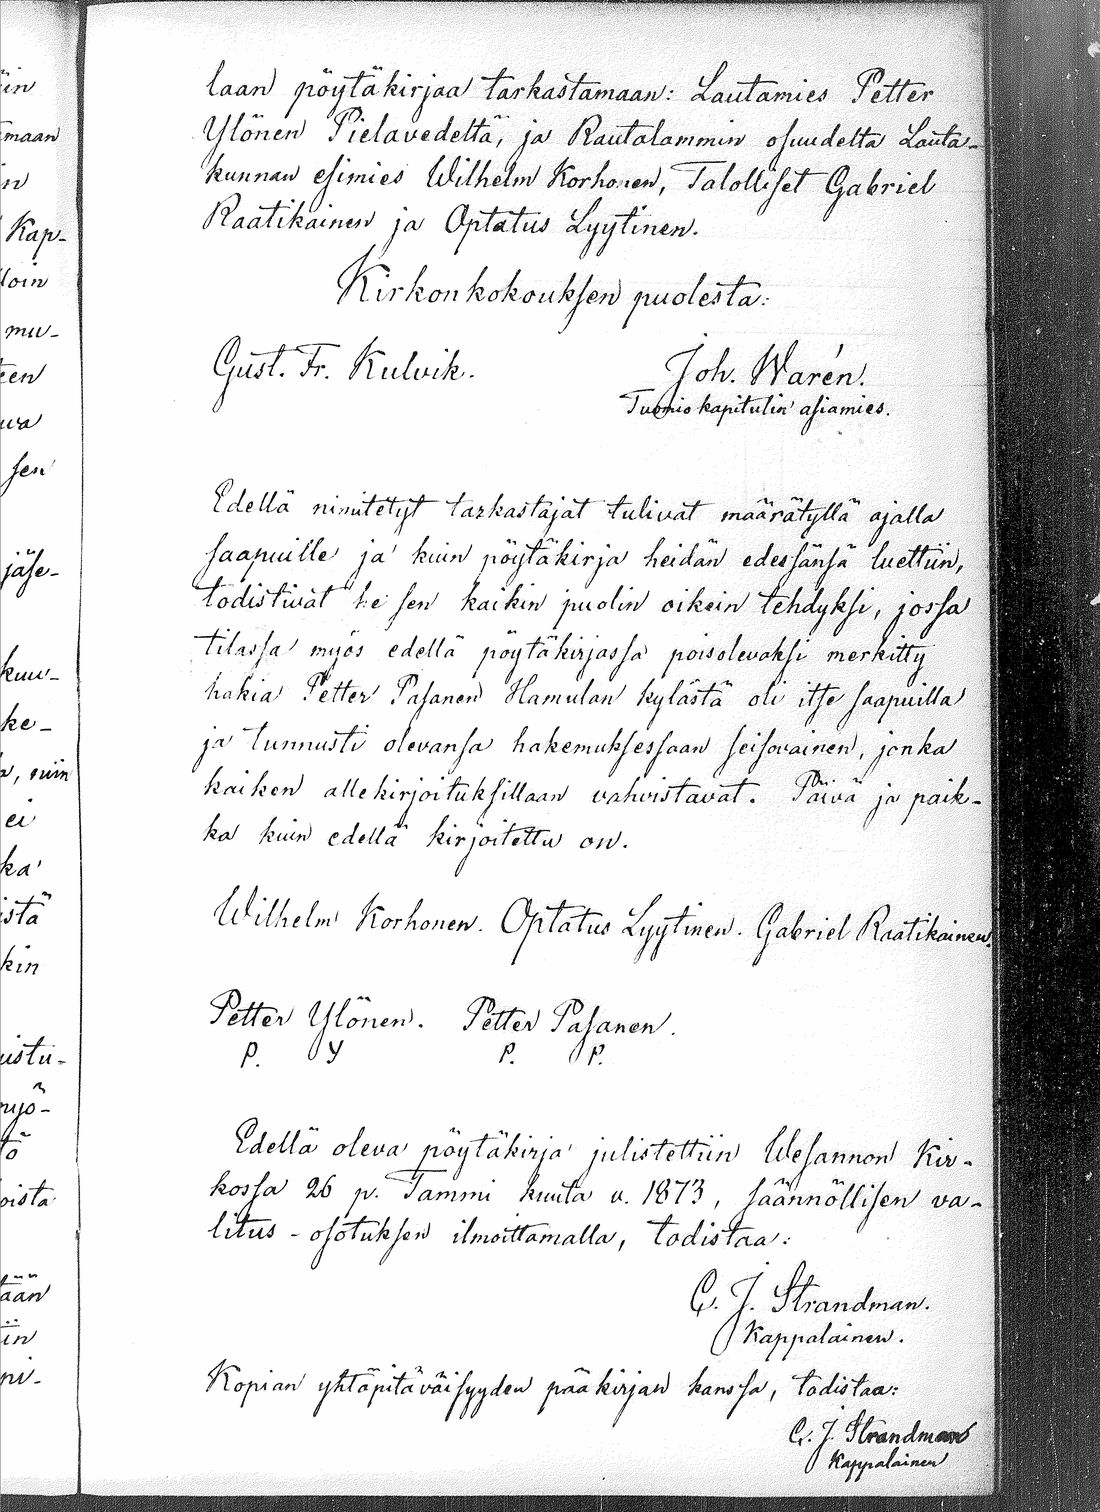 in
maan
n
Kap-
loin
mu-
een
wa
sen
jäse-
kuu-
ke-
niin
ei
ka
istä
kin
ustu-
myö-
tö
oista
ään
in
ni-
laan pöytäkirjaa tarkastamaan: Lautamies Petter
Ylönen Pielavedeltä, ja Rautalammin osuudelta Lauta-
kunnan esimies Wilhelm Korhonen, Talolliset Gabriel
Raatikainen ja Optatus Lyytinen.
Kirkonkokouksen puolesta:
Gust. Fr. Kulvik. Joh. Warén.
Tuomiokapitulin asiamies.
Edellä nimitetyt tarkastajat tulivat määrätyllä ajalla
saapuille ja kuin pöytäkirja heidän edessänsä luettiin,
todistivat he sen kaikin puolin oikein tehdyksi, jossa
tilassa myös edellä pöytäkirjassa poisolevaksi merkitty
hakia Petter Pasanen Hamulan kylästä oli itse saapuilla
ja tunnusti olevansa hakemuksessaan seisovainen, jonka
kaiken allekirjoituksillaan vahvistavat. Päivä ja paik-
ka kuin edellä kirjoitettu on.
Wilhelm Korhonen. Optatus Lyytinen. Gabriel Raatikainen.
Petter Ylönen. Petter Pasanen.
P. Y P. P.
Edellä oleva pöytäkirja julistettiin Wesannon Kir-
kossa 26 p. Tammi kuuta v. 1873, säännöllisen va-
litus-osotuksen ilmoittamalla, todistaa:
C. J. Strandman.
Kappalainen.
Kopian yhtäpitäväisyyden pääkirjan kanssa, todistaa:
C. J. Strandman
Kappalainen